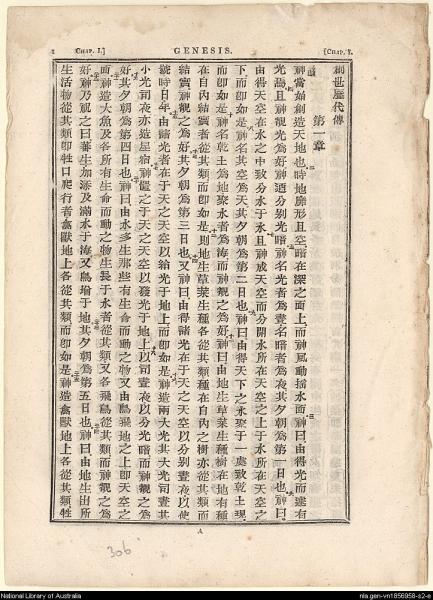 2 CHAP. I.] GENESIS. [CHAP. I.
創世歷代傳
第一章
神當始創造天地也時地廓形且空暗在深之面上而神風動搖水面神曰由得光而遂有
光焉且神觀光為好神遂分別光暗神名光者為晝名暗者為夜其夕朝為第一日也神曰
由得天空在水之中致分水于水且神成天空而分開水所在天空之上于水所在天空之
下而即如是神名其空為天其夕朝為第二日也神曰由得天下之水聚于一處致乾土現
而即如是神名乾土為地聚水者為海而神觀之為好神曰由地生草菜生種樹在地有種
在自內結實者從其類而即如是則地生草菜生種各從其類種在自內之樹亦從其類而
結實神觀之為好其夕朝為第三日也又神曰由得諸光在于天之天空以分別晝夜以使
號時日年由諸光者在于天之天空以給光于地上而即如是神造兩大光大光司晝其
小光司夜亦造星宿神置之于天之天空以發光于地上以司晝夜以分光暗而神觀之為
好其夕朝為第四日也神曰由水多生那些有生命而動之物又由鳥飛地之上即天空之
面神造大魚及各所有生命而動之物生長于水者從其類又各飛鳥從其類而神觀之為
好神乃祝之曰蕃生加添及滿水于海又鳥增于地其夕朝為第五日也神曰由地生出所
生活物從其類即牲口爬行者禽獸地上各從其類而即如是神造禽獸地上各從其類牲
A
306
National Library of Australia
nla.gen-vn1856958-s2-e